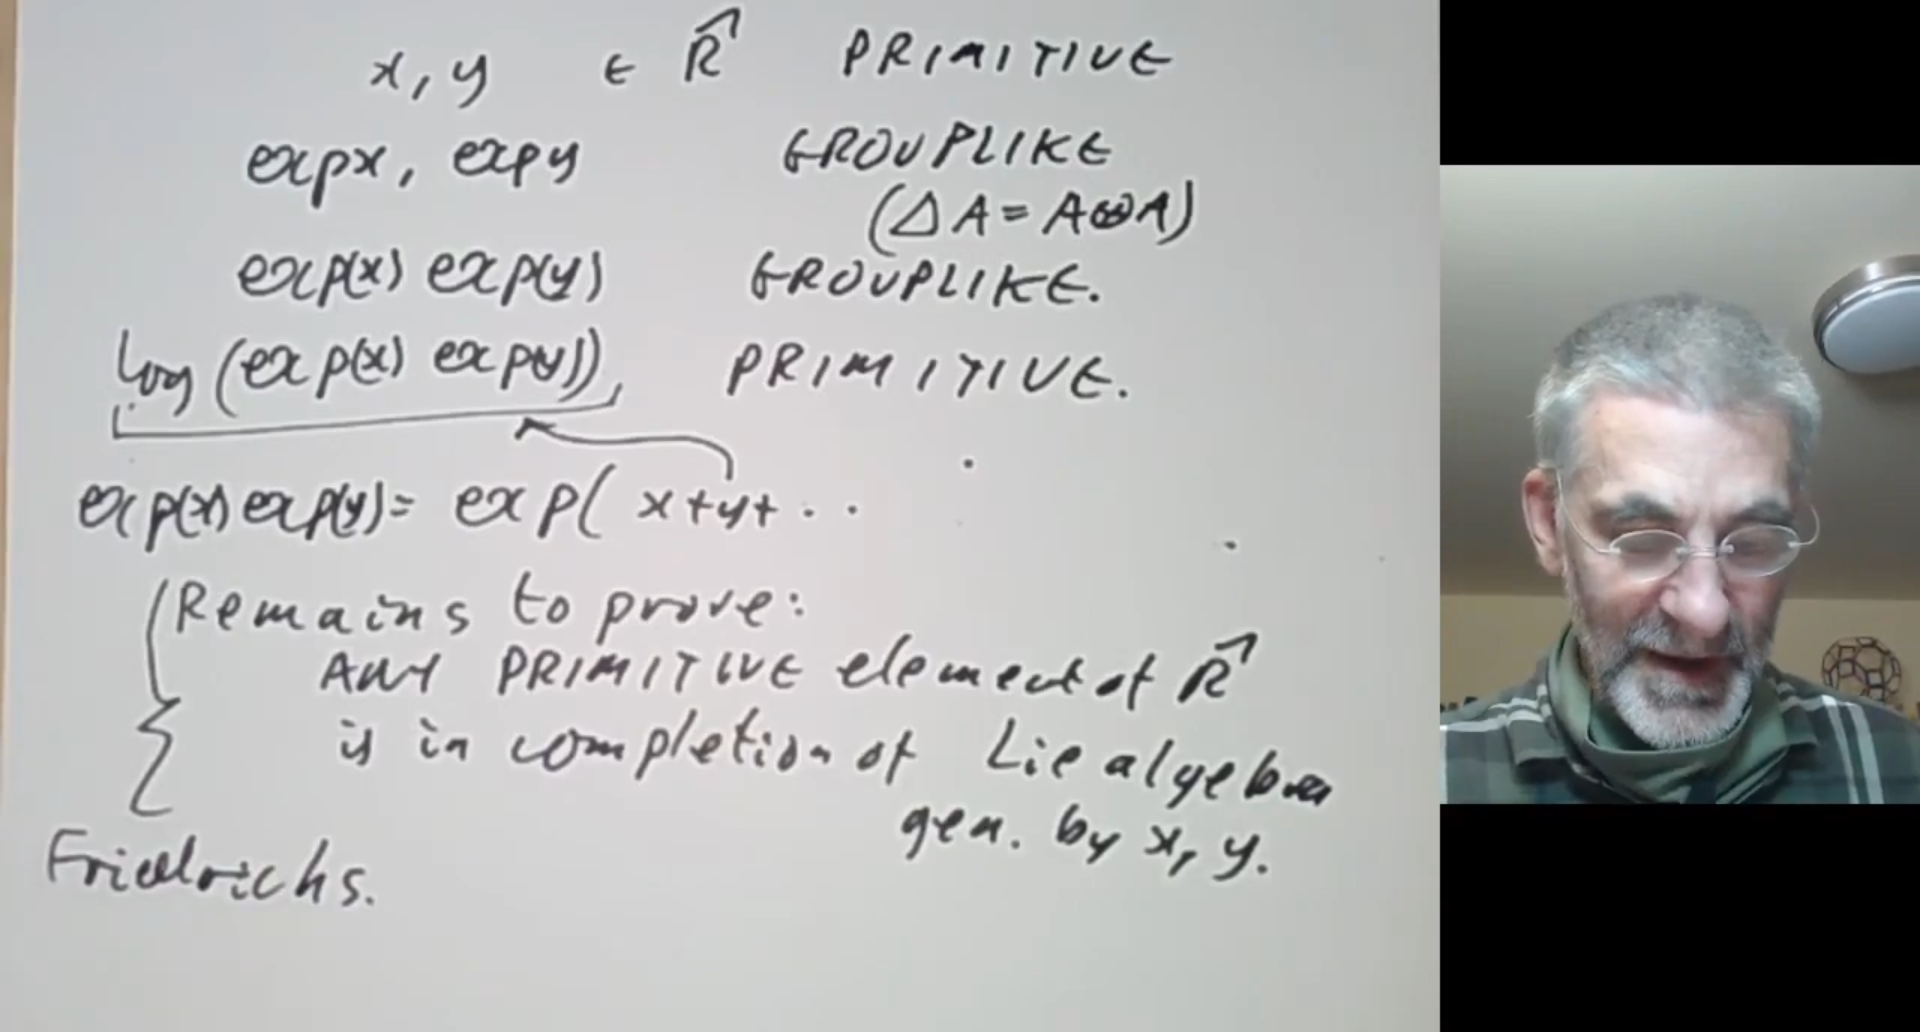 x, y ∈ R̂ PRIMITIVE
exp x, exp y GROUPLIKE
(ΔA = A⊗A)
exp(x) exp(y) GROUPLIKE.
log (exp(x) exp(y)) PRIMITIVE.
exp(x) exp(y) = exp( x+y+ ..
Remains to prove:
ANY PRIMITIVE element of R̂
is in completion of Lie algebra
gen. by x, y.
Friedrichs.